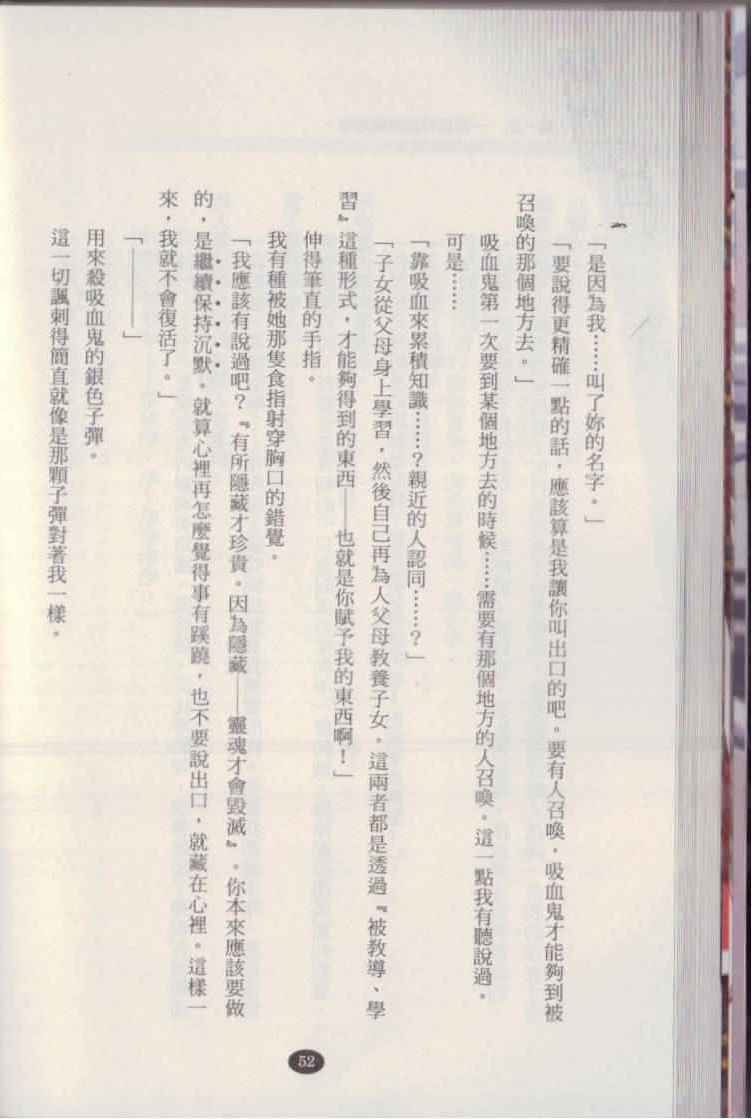 「是因為我……叫了妳的名字。」
「要說得更精確一點的話，應該算是我讓你叫出口的吧。要有人召喚，吸血鬼才能夠到被
召喚的那個地方去。」
吸血鬼第一次要到某個地方去的時候……需要有那個地方的人召喚。這一點我有聽說過。
可是……
「靠吸血來累積知識……？親近的人認同……？」
「子女從父母身上學習，然後自己再為人父母教養子女。這兩者都是透過『被教導、學
習』這種形式，才能夠得到的東西——也就是你賦予我的東西啊！」
伸得筆直的手指。
我有種被她那隻食指射穿胸口的錯覺。
「我應該有說過吧？『有所隱藏才珍貴。因為隱藏——靈魂才會毀滅』。你本來應該要做
的，是繼續保持沉默。就算心裡再怎麼覺得事有蹊蹺，也不要說出口，就藏在心裡。這樣一
來，我就不會復活了。」
「————」
用來殺吸血鬼的銀色子彈。
這一切諷刺得簡直就像是那顆子彈對著我一樣。
52